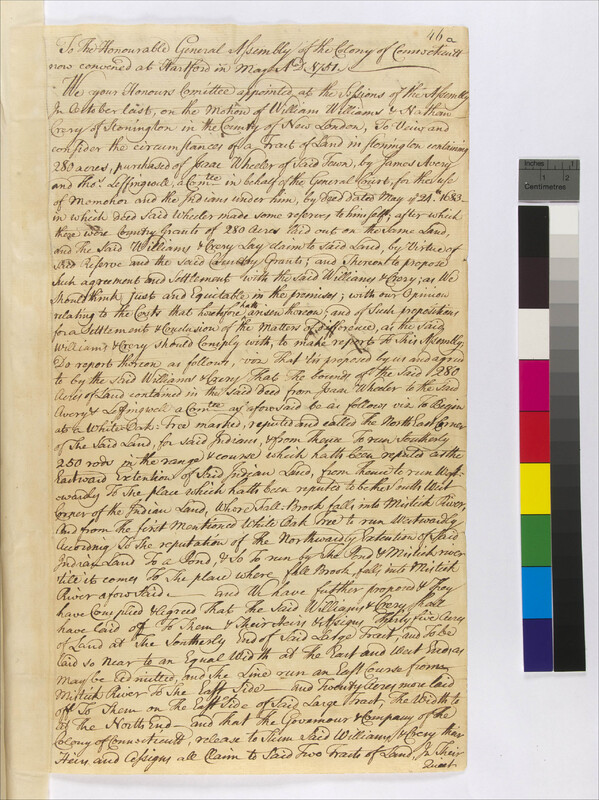 46a
To The Honourable General Assembly of the Colony of Connecticutt
now convened at Hartford in May AD 1751
We your Honours Comittee appointed at the Sessions of the Assembly
In October last, on the Motion of William Williams & Nathan
Crery of Stonington in the County of New London, To View and
consider the circumstances of a Tract of Land in Stonington containing
280 acres, purchased of Isaac Wheeler of Said Town, by James Avery
and Thos. Leffingwell, a Comtee in behalf of the General Court, for the use
of Momohor and the Indians under him, by Deed dated May ye 24th 1683
in which deed Said Wheeler made some reserves to himself; after which
there were Country Grants of 280 Acres laid out on the Same Land,
and the Said Williams & Crery Lay claim to Said Land, by Virtue of
Said Reserve and the said Country Grants; and Thereon to propose
Such agreement and Settlement with the said Williams & Crery; as We
Should think Just and Equitable in the premises; with our Opinion
relating to the Costs that heretofore hath arisen thereon; and of Such propositions
for a Settlement & Conclusion of the Matters of Difference, as the said
Williams & Crery Should Comply with, to make report to This Assembly;
Do report thereon as follows, viz That tis proposed by us and agreed
to by the Said Williams & Crery That the bounds of the Said 280
Acres of Land contained in the said Deed from Isaac Wheeler to the said
Avery & Leffingwell a Comtee as aforesaid be as follows viz To Begin
at a White Oak Tree marked, reputed and called the North East Corner
of The Said Land, for said Indians, & from thence To run Southerly
250 rods in the range & course which hath been reputed as the
Eastward Extention of Said Indian Land, from thence to run West-
wardly To The place which hath been reputed to be the South West
Corner of the Indian Land, Where Fall Brook falls into Mistick River,
And from the first Mentioned White Oak Tree to run Westwardly
According To The reputation of the Northwardly Extention of Said
Indian Land To a Pond, & So To run by The Pond & Mistick river
'till it comes To The place where Fall Brook falls into Mistick
River aforesaid — and We have further proposed & They
have Complied & Agreed That the Said Williams & Crery Shall
have laid off To Them & Their Heirs & Assigns Thirty five Acres
of Land at The Southerly End of Said Large Tract, and To be
laid so near to an Equal Width at the East and West End, as
may be admitted, and the Line run an East Course from
Mistick River To The East Side — And Twenty Acres more laid
off To Them on The East Side of Said Large Tract, The Width to
at the North End — and that the Governour & Company of the
Colony of Connecticutt, release to Them Said Williams & Crery their
Heirs and Assigns all Claim to Said Two Tracts of Land, In Their
Quiet
Inches 1 2
Centimetres